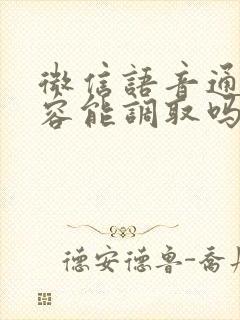 微信語音通
容能調取吗
德安德鲁-喬